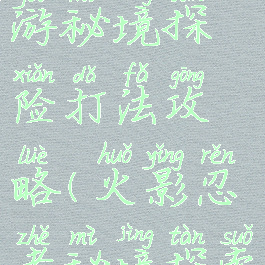 游秘境探
xiǎn dǎ fǎ gōng
险打法攻
lüè huǒ yǐng rěn
略(火影忍
zhě mì jìng tàn suǒ
者秘境探索